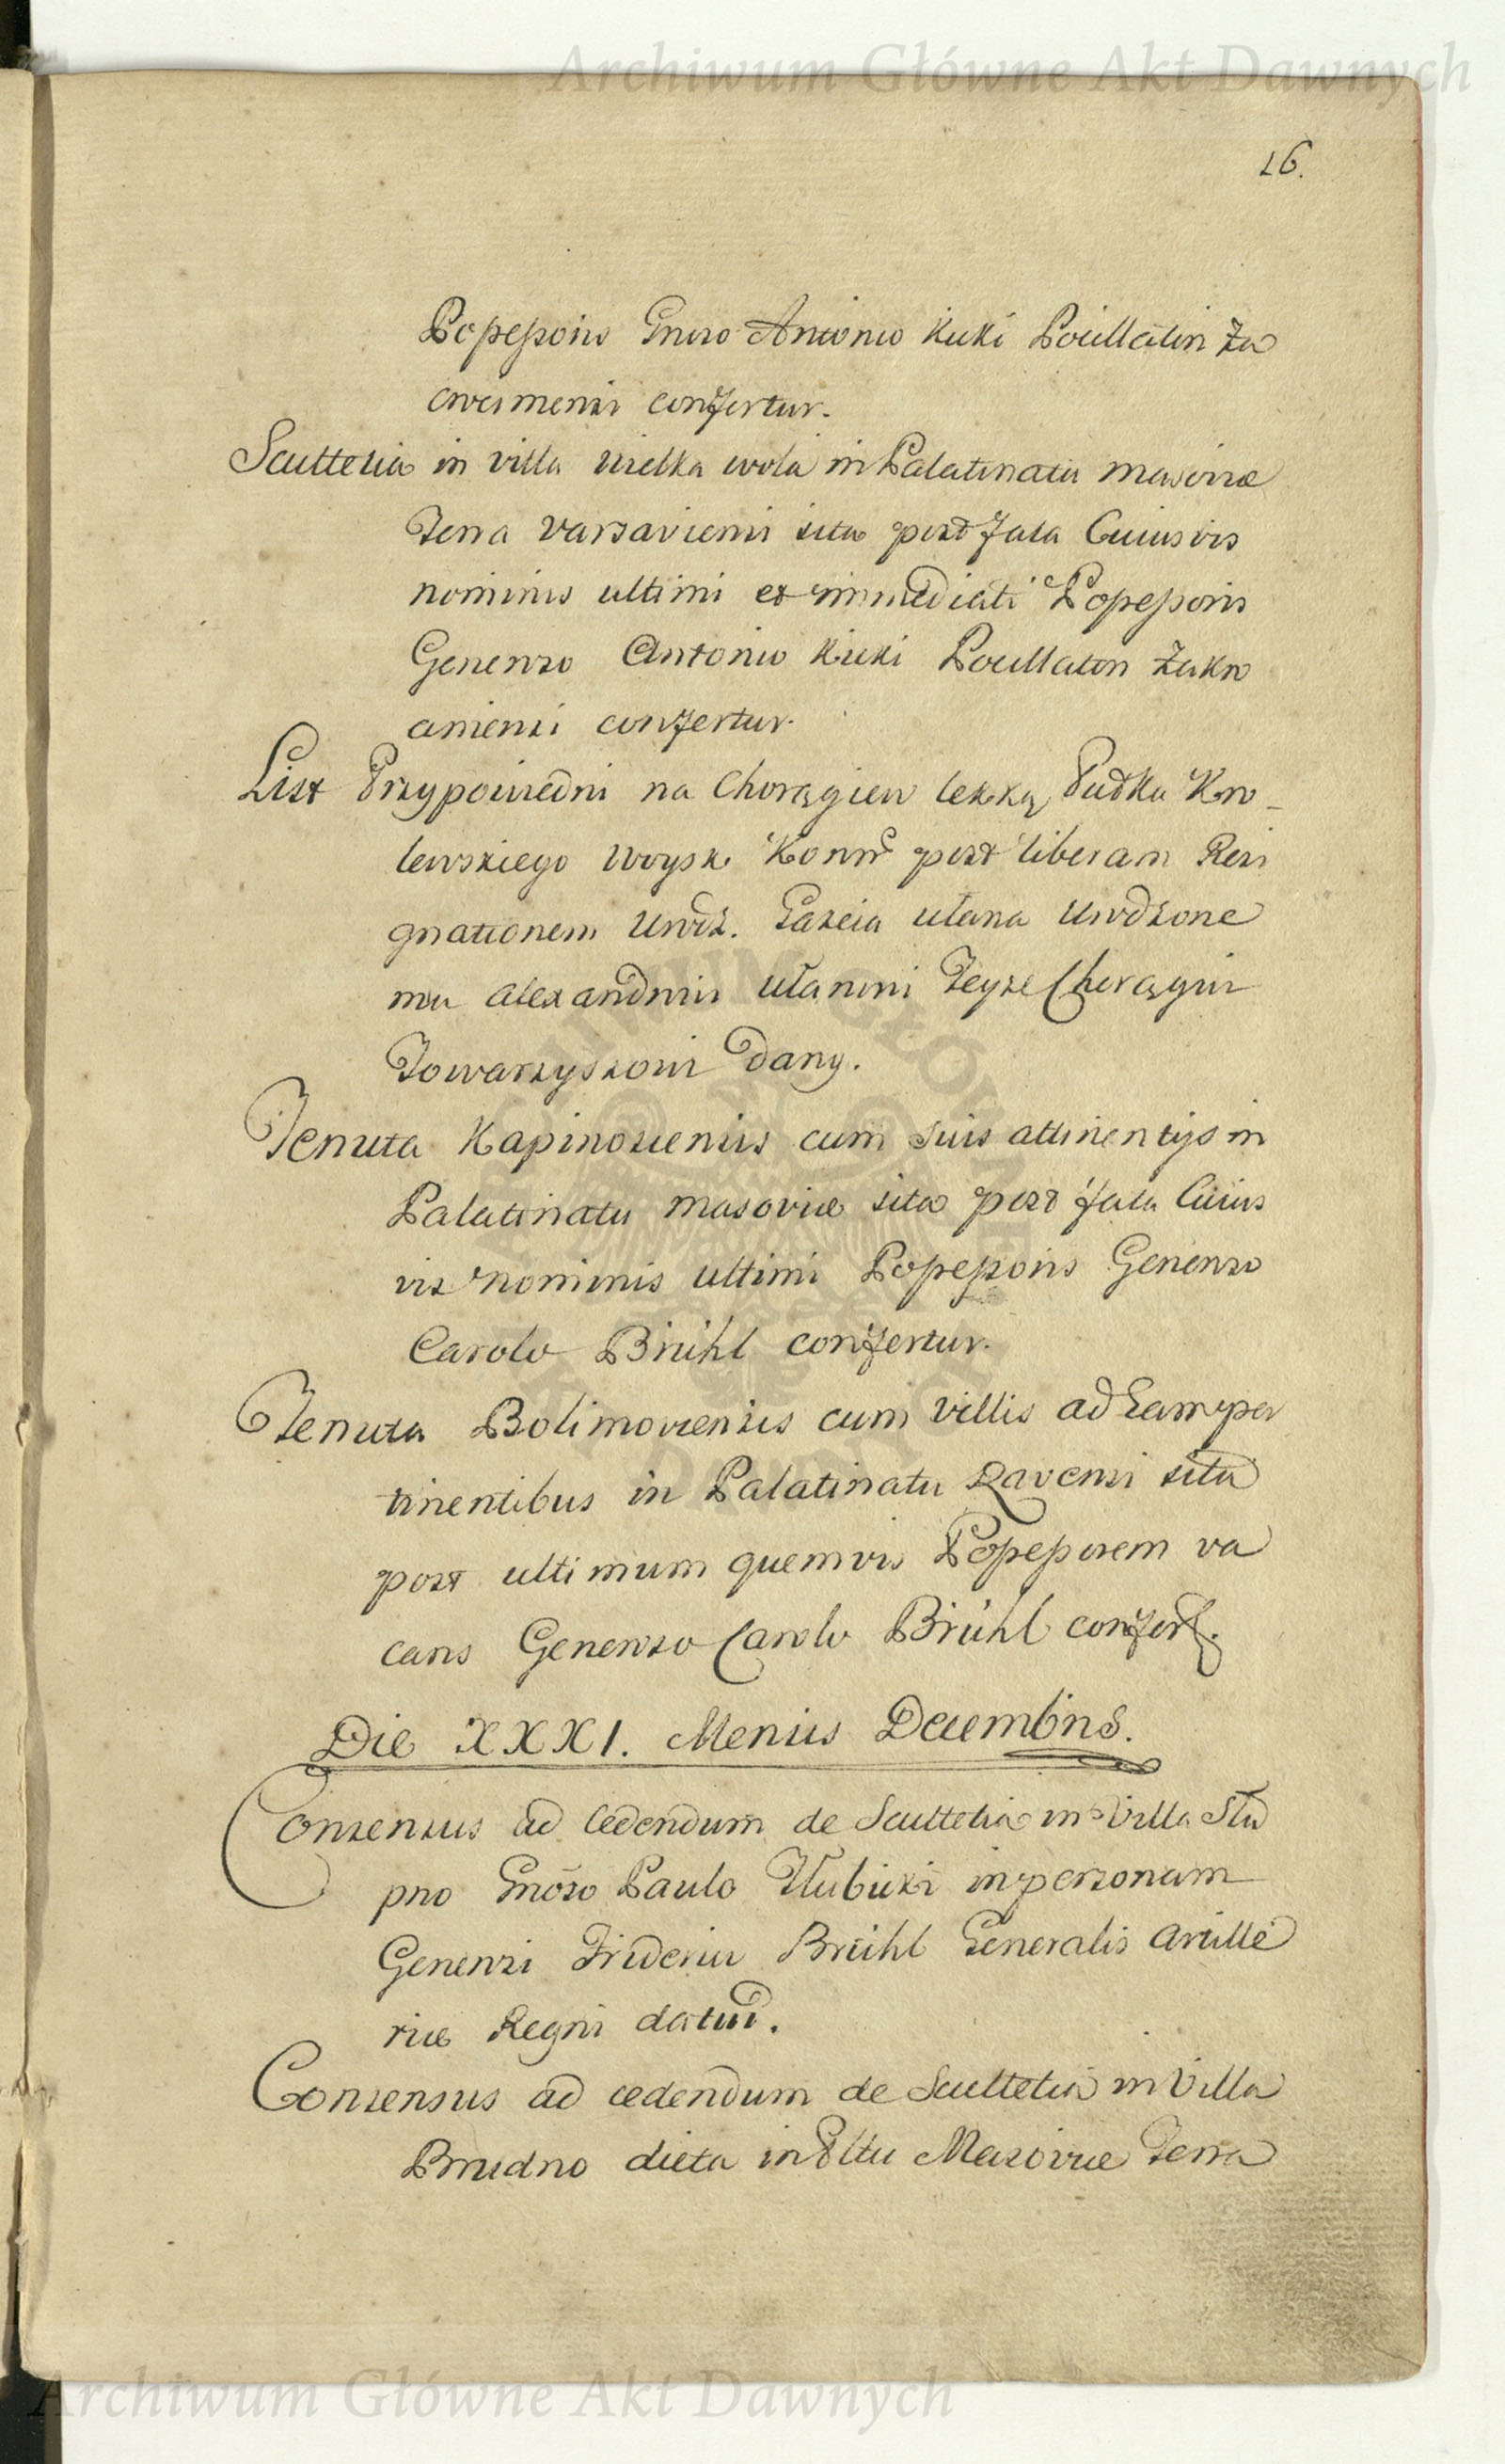 Archiwum Główne Akt Dawnych
16.
Possessoris Gnroso Antonio Kicki Pocillatori Za
crocimensi confertur.
Scultetia in villa Wielka wola in Palatinatu Masoviæ
Terra Varsaviensi sita post fata Cuiusvis
nominis ultimi et immediati Possessoris
Generoso Antonio Kicki Pocillatori Zakro
cimensi confertur.
List Przypowiedni na Chorągiew lekką Pułku Kro-
lewskiego Woysk Konn post liberam Resi
gnationem Urodz. Jakuba Ułana Urodzone
mu Alexandrowi Ułanowi Teyze Chorągwi
Towarzyszowi dany.
Tenuta Kapinosiensis cum suis attinentijs in
Palatinatu Masoviæ sita post fata Cuius
vis nominis ultimi Possessoris Generoso
Carolo Brühl confertur.
Tenuta Bolimoviensis cum villis ad Eam per
tinentibus in Palatinatu Ravensi sita
post ultimum quemvis Possessorem va
cans Generoso Carolo Brühl confert.
Die XXXI. Mensis Decembris.
Consensus ad Cedendum de Scultetia in Villa Słu
pno Gnoso Paulo Hubicki in personam
Generosi Friderici Brühl Generalis Artille
riæ Regni datur.
Consensus ad cedendum de Scultetia in Villa
Brudno dicta in Pltu Masoviæ Terra
Archiwum Główne Akt Dawnych